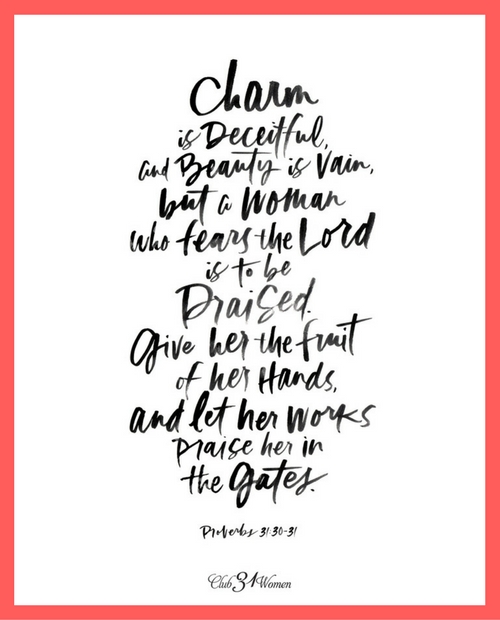 Charm
is Deceitful,
and Beauty is Vain,
but a Woman
who fears the Lord
is to be
Praised.
Give her the fruit
of her Hands,
and let her works
Praise her in
the Gates.
Proverbs 31:30-31
Club 31 Women